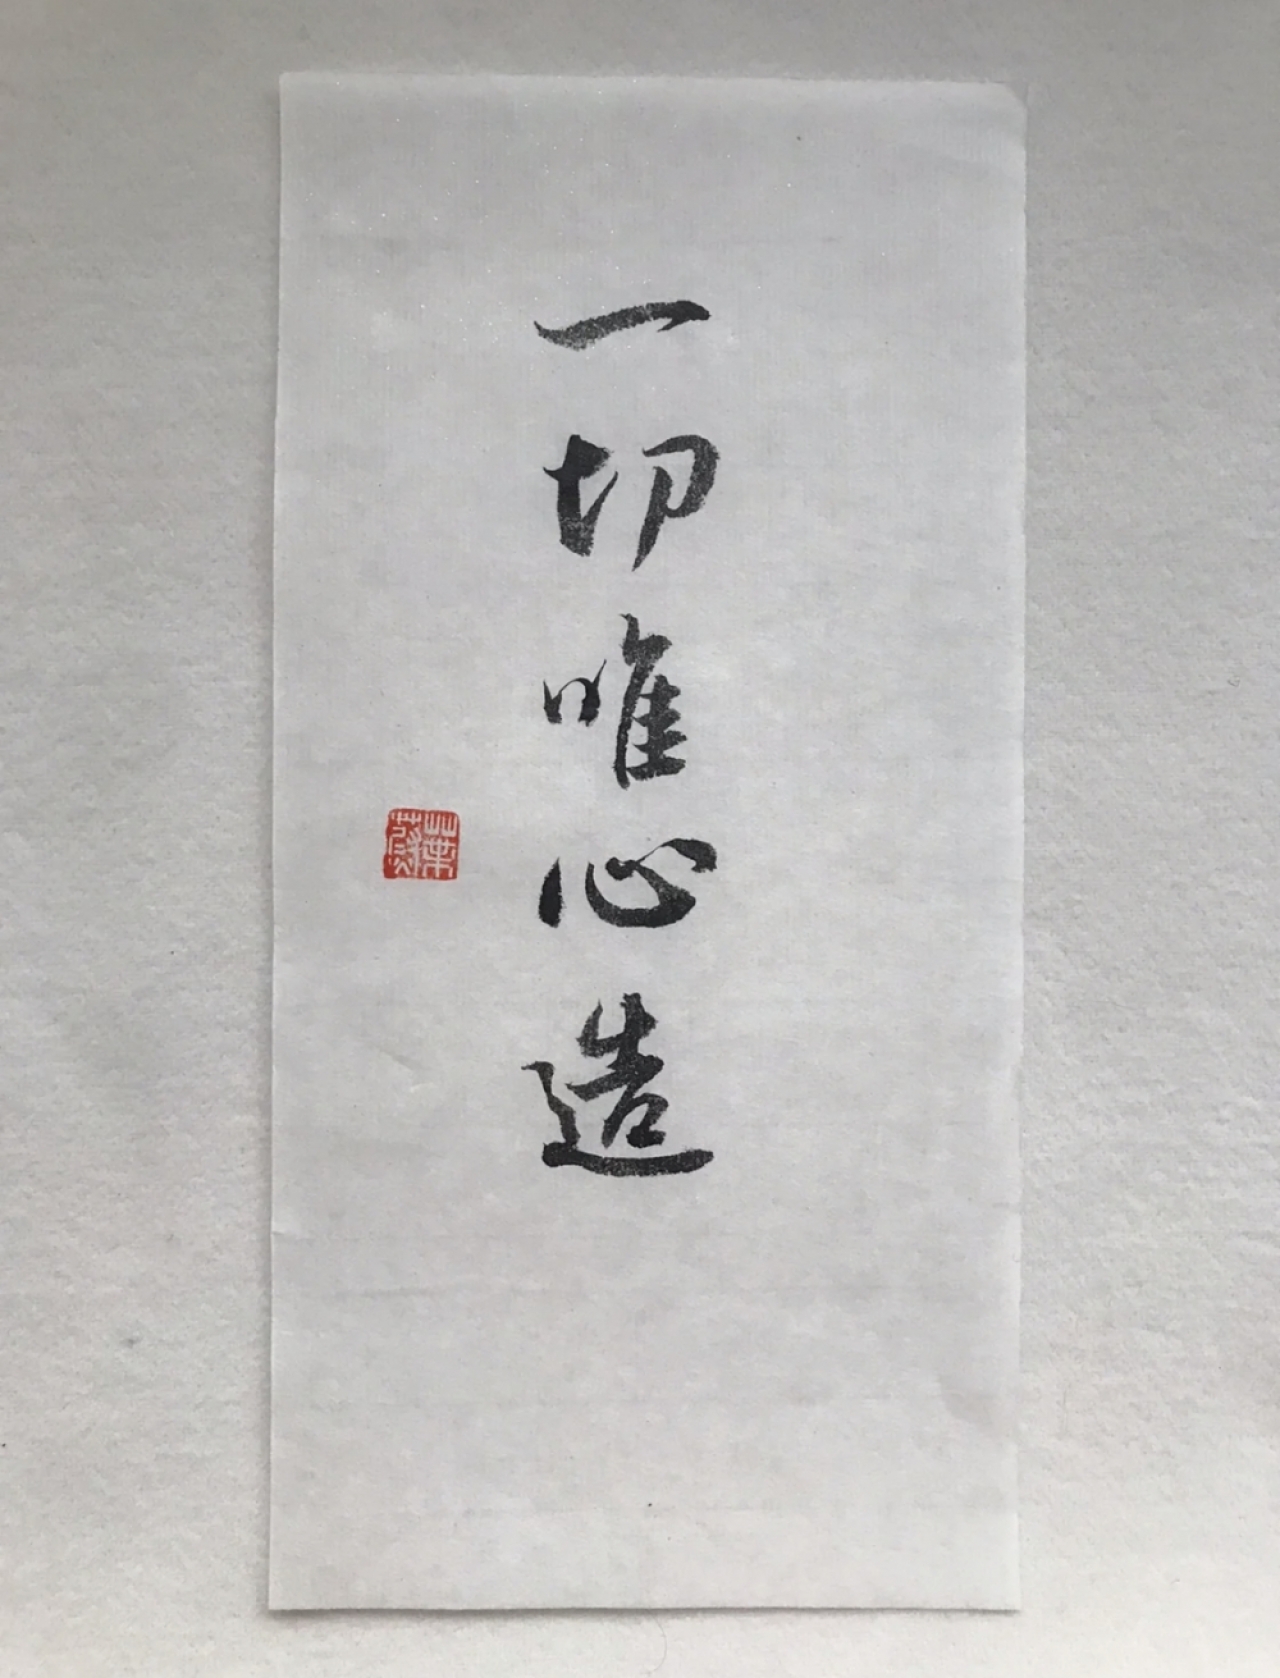 一切唯心造
葉